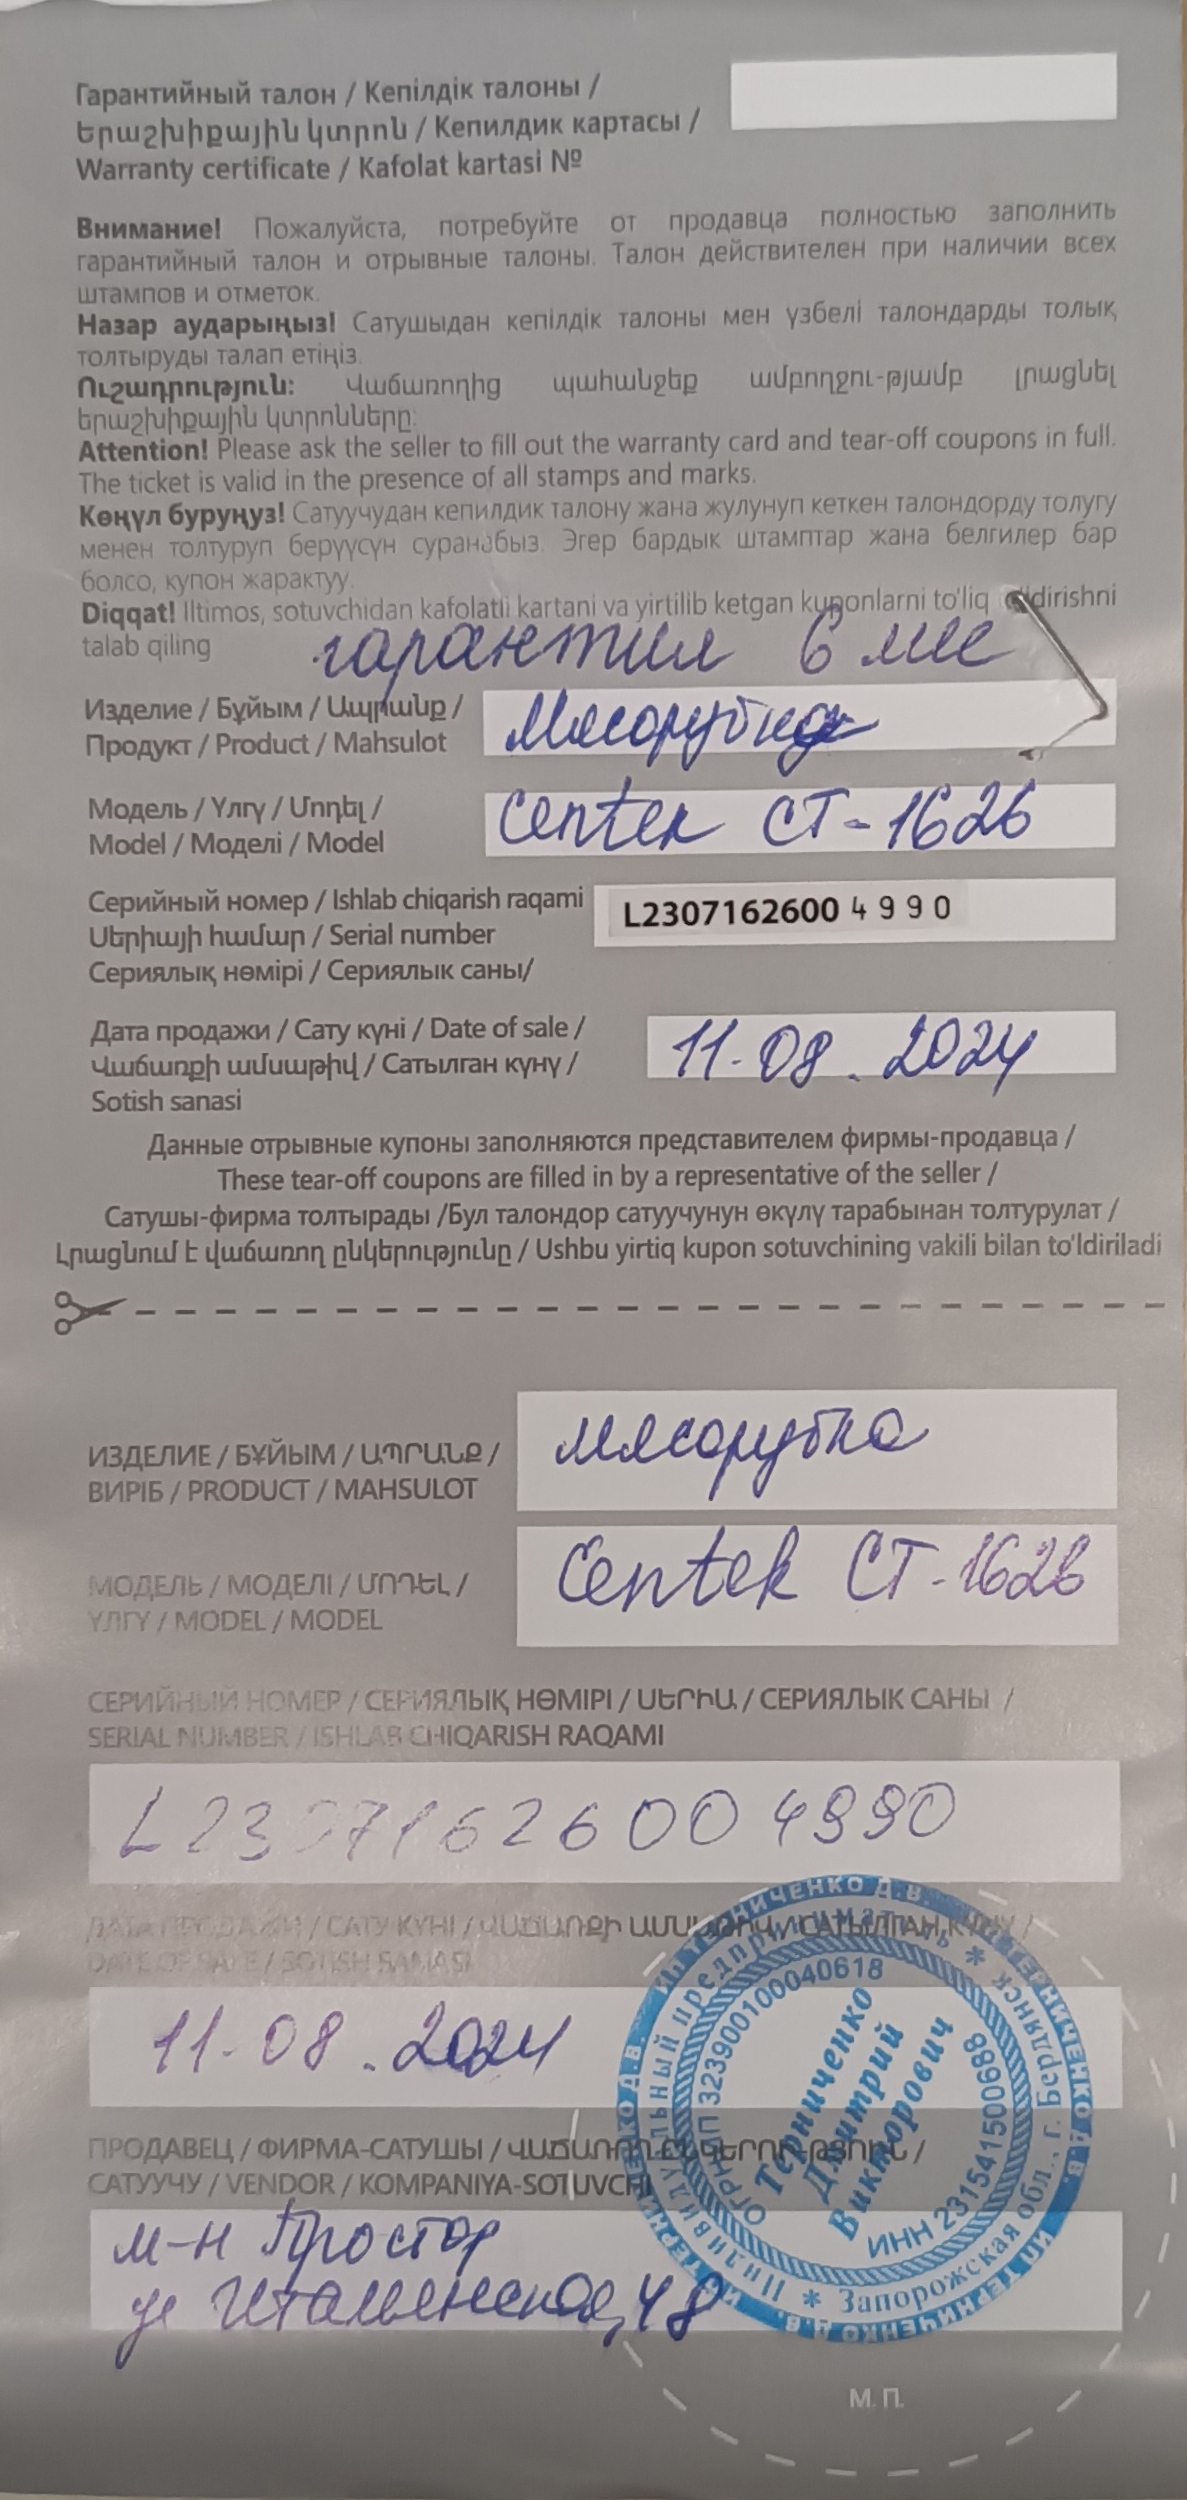 Гарантийный талон / Кепілдік талоны /
Երաշխիքային կտրոն / Кепилдик картасы /
Warranty certificate / Kafolat kartasi №
Внимание! Пожалуйста, потребуйте от продавца полностью заполнить
гарантийный талон и отрывные талоны. Талон действителен при наличии всех
штампов и отметок.
Назар аударыңыз! Сатушыдан кепілдік талоны мен үзбелі талондарды толық
толтыруды талап етіңіз.
Ուշադրություն: Վաճառողից պահանջեք ամբողջու-թյամբ լրացնել
երաշխիքային կտրոնները:
Attention! Please ask the seller to fill out the warranty card and tear-off coupons in full.
The ticket is valid in the presence of all stamps and marks.
Көңүл буруңуз! Сатуучудан кепилдик талону жана жулунуп кеткен талондорду толугу
менен толтуруп берүүсүн суранабыз. Эгер бардык штамптар жана белгилер бар
болсо, купон жарактуу.
Diqqat! Iltimos, sotuvchidan kafolatli kartani va yirtilib ketgan kuponlarni to'liq
talab qiling
гарантия 6 мес
Изделие / Бұйым / Ապրանք /
Продукт / Product / Mahsulot
Мясорубка
Модель / Үлгү / Մոդել /
Model / Моделі / Model
Centek CT-1626
Серийный номер / Ishlab chiqarish raqami
Սերիայի համար / Serial number
Сериялық нөмірі / Сериялык саны/
L23071626004990
Дата продажи / Сату күні / Date of sale /
Վաճառքի ամսաթիվ / Сатылган күнү /
Sotish sanasi
11.08.2024
Данные отрывные купоны заполняются представителем фирмы-продавца /
These tear-off coupons are filled in by a representative of the seller /
Сатушы-фирма толтырады /Бул талондор сатуучунун өкүлү тарабынан толтурулат /
Լրացնում է վաճառող ընկերությունը / Ushbu yirtiq kupon sotuvchining vakili bilan to'ldiriladi
ИЗДЕЛИЕ / БҰЙЫМ / ԱՊՐԱՆՔ /
ВИРІБ / PRODUCT / MAHSULOT
мясорубка
МОДЕЛЬ / МОДЕЛІ / ՄՈԴԵԼ /
ҮЛГҮ / MODEL / MODEL
Centek CT-1626
СЕРИЙНЫЙ НОМЕР / СЕРИЯЛЫҚ НӨМІРІ / ՍԵՐԻԱ / СЕРИЯЛЫК САНЫ /
SERIAL NUMBER / ISHLAB CHIQARISH RAQAMI
L23071626004990
ДАТА ПРОДАЖИ / САТУ КҮНІ / ՎԱՃԱՌՔԻ ԱՄՍԱԹԻՎ / САТЫЛГАН КҮНҮ /
DATE OF SALE / SOTISH SANASI
11.08.2024
ПРОДАВЕЦ / ФИРМА-САТУШЫ / ՎԱՃԱՌՈՂ ԸՆԿԵՐՈՒԹՅՈՒՆ /
САТУУЧУ / VENDOR / KOMPANIYA-SOTUVCHI
м-н Простор
ул Итальянская, 48
ИП ТЕРНИЧЕНКО Д.В. ИП ТЕРНИЧЕНКО Д.В. ИП ТЕРНИЧЕНКО Д.В. ИП ТЕРНИЧЕНКО Д.В.
Индивидуальный предприниматель * Запорожская обл., г. Бердянск *
ОГРНИП 323900100040618
ИНН 231541500988
Терниченко
Дмитрий
Викторович
М.П.